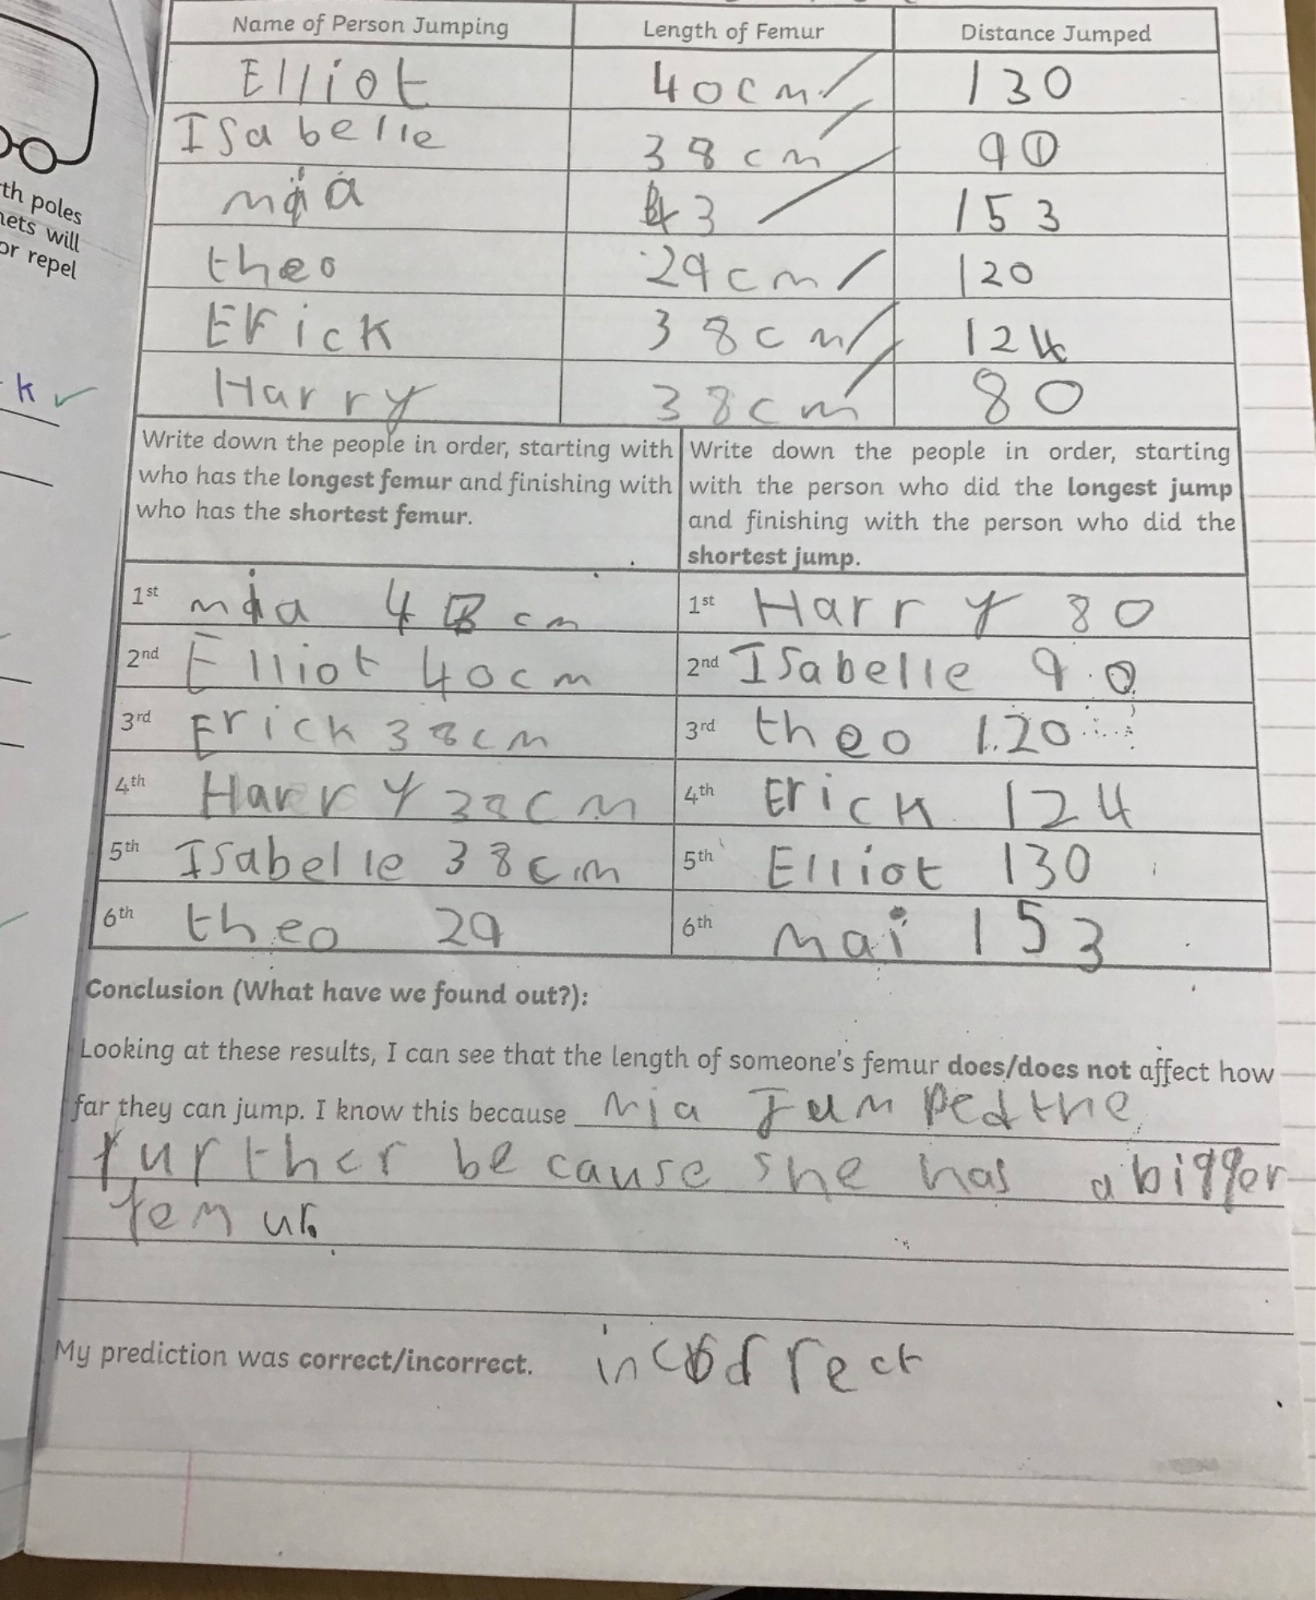 th poles
nets will
or repel
k
Name of Person Jumping Length of Femur Distance Jumped
Elliot 40cm 130
Isabelle 38cm 90
mia 43 153
theo 29cm 120
Erick 38cm 124
Harry 38cm 80
Write down the people in order, starting with
who has the longest femur and finishing with
who has the shortest femur.
Write down the people in order, starting
with the person who did the longest jump
and finishing with the person who did the
shortest jump.
1st mia 43 cm 1st Harry 80
2nd Elliot 40cm 2nd Isabelle 90
3rd Erick 38cm 3rd theo 120
4th Harry 38cm 4th Erick 124
5th Isabelle 38cm 5th Elliot 130
6th theo 29 6th mai 153
Conclusion (What have we found out?):
Looking at these results, I can see that the length of someone's femur does/does not affect how
far they can jump. I know this because mia Jumped the
further because she has a bigger
femur.
My prediction was correct/incorrect. incorrect